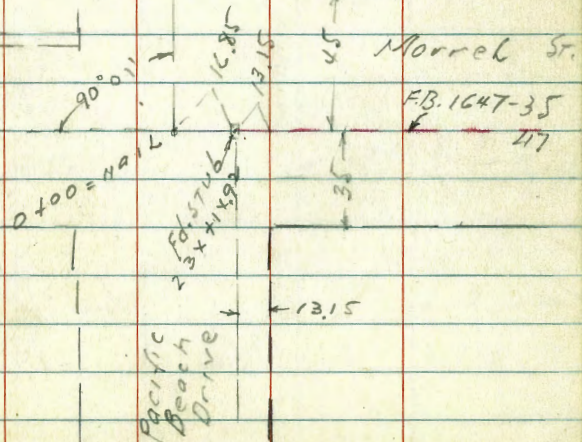 Morrel St.
16.85
13.15
45
90°01'
F.B. 1647-35
47
0+00 = Nail
Fd. Stub
35
13.15
Pacific
Beach
Drive